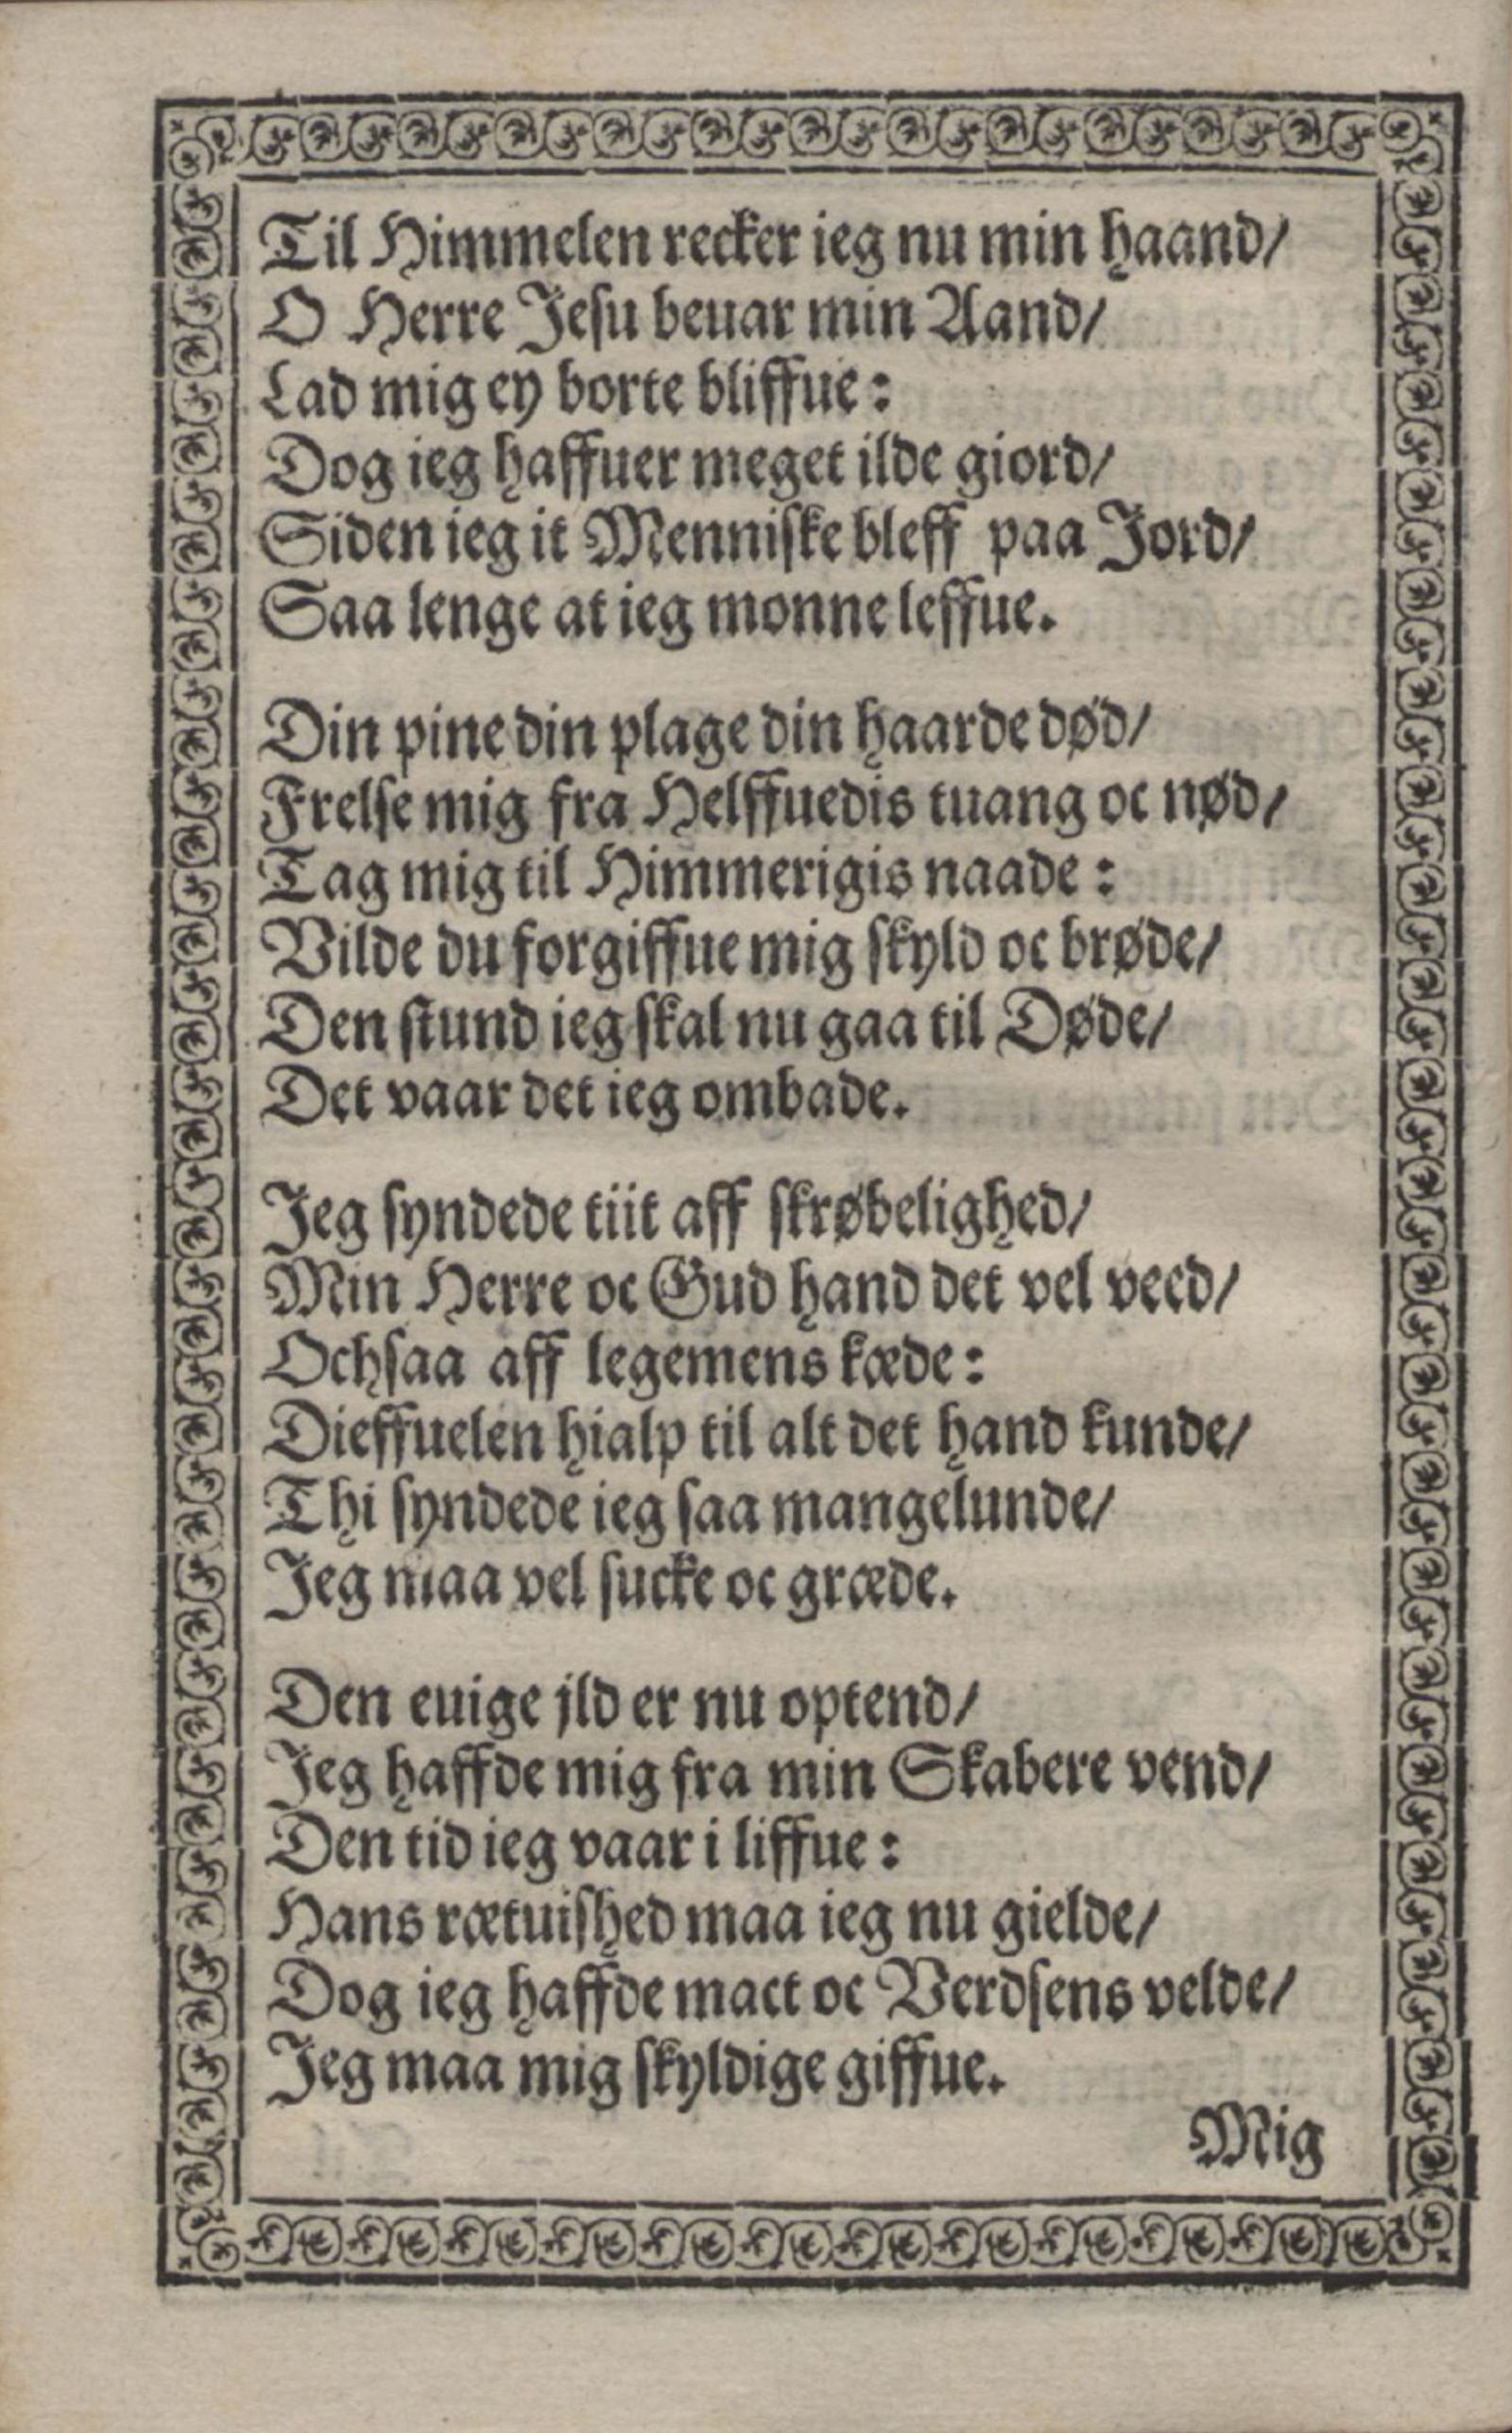 Til Himmelen recker ieg nu min haand/
O Herre Jesu beuar min Aand/
Lad mig ey borte bliffue:
Dog ieg haffuer meget ilde giord/
Siden ieg it Menniske bleff paa Jord/
Saa lenge at ieg monne leffue.
Din pine din plage din haarde død/
Frelse mig fra Helffuedis tuang oc nød/
Tag mig til Himmerigis naade:
Vilde du forgiffue mig skyld oc brøde/
Den stund ieg skal nu gaa til Døde/
Det vaar det ieg ombade.
Jeg syndede tiit aff skrøbelighed/
Min Herre oc Gud hand det vel veed/
Ochsaa aff legemens kæde:
Dieffuelen hialp til alt det hand kunde/
Thi syndede ieg saa mangelunde/
Jeg maa vel sucke oc græde.
Den euige jld er nu optend/
Jeg haffde mig fra min Skabere vend/
Den tid ieg vaar i liffue:
Hans rætuished maa ieg nu gielde/
Dog ieg haffde mact oc Verdsens velde/
Jeg maa mig skyldige giffue.
Mig